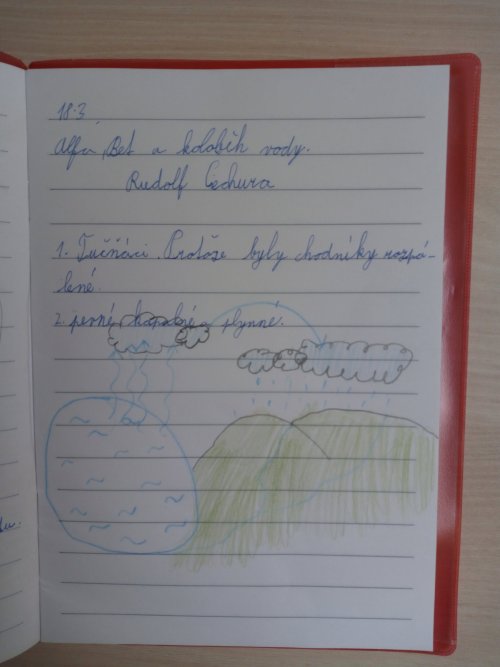 18.3.
Alfa, Bet a koloběh vody.
Rudolf Čechura
1. Tučňáci. Protože byly chodníky rozpá-
lené.
2. pevné kapalné a plynné.